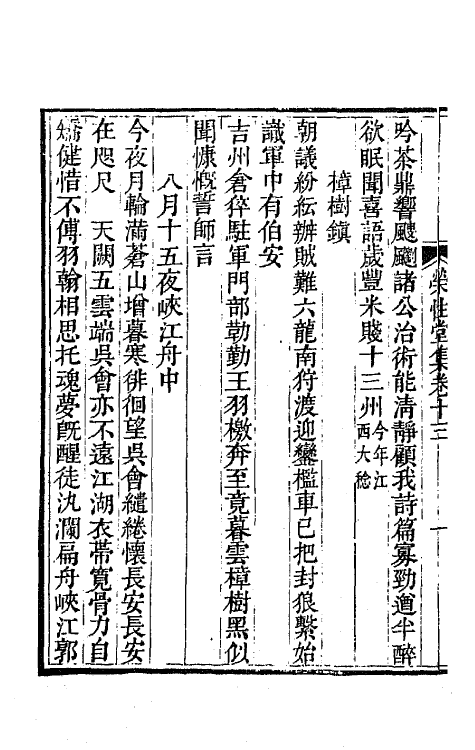 榮性堂集卷十三　一
吟茶鼎響颼颼諸公治術能清靜顧我詩篇寡勁遒半醉
欲眠聞喜語歲豐米賤十三州今年江西大稔
樟樹鎮
朝議紛紜辦賊難六龍南狩渡迎鑾檻車已把封狼繫始
識軍中有伯安
吉州倉猝駐軍門部勒勤王羽檄奔至竟暮雲樟樹黑似
聞慷慨誓師言
八月十五夜峽江舟中
今夜月輪滿蒼山增暮寒徘徊望吳會繾綣懷長安長安
在咫尺　天闕五雲端吳會亦不遠江湖衣帶寬骨力自
矯健惜不傅羽翰相思托魂夢旣醒徒汍瀾扁舟峽江郭